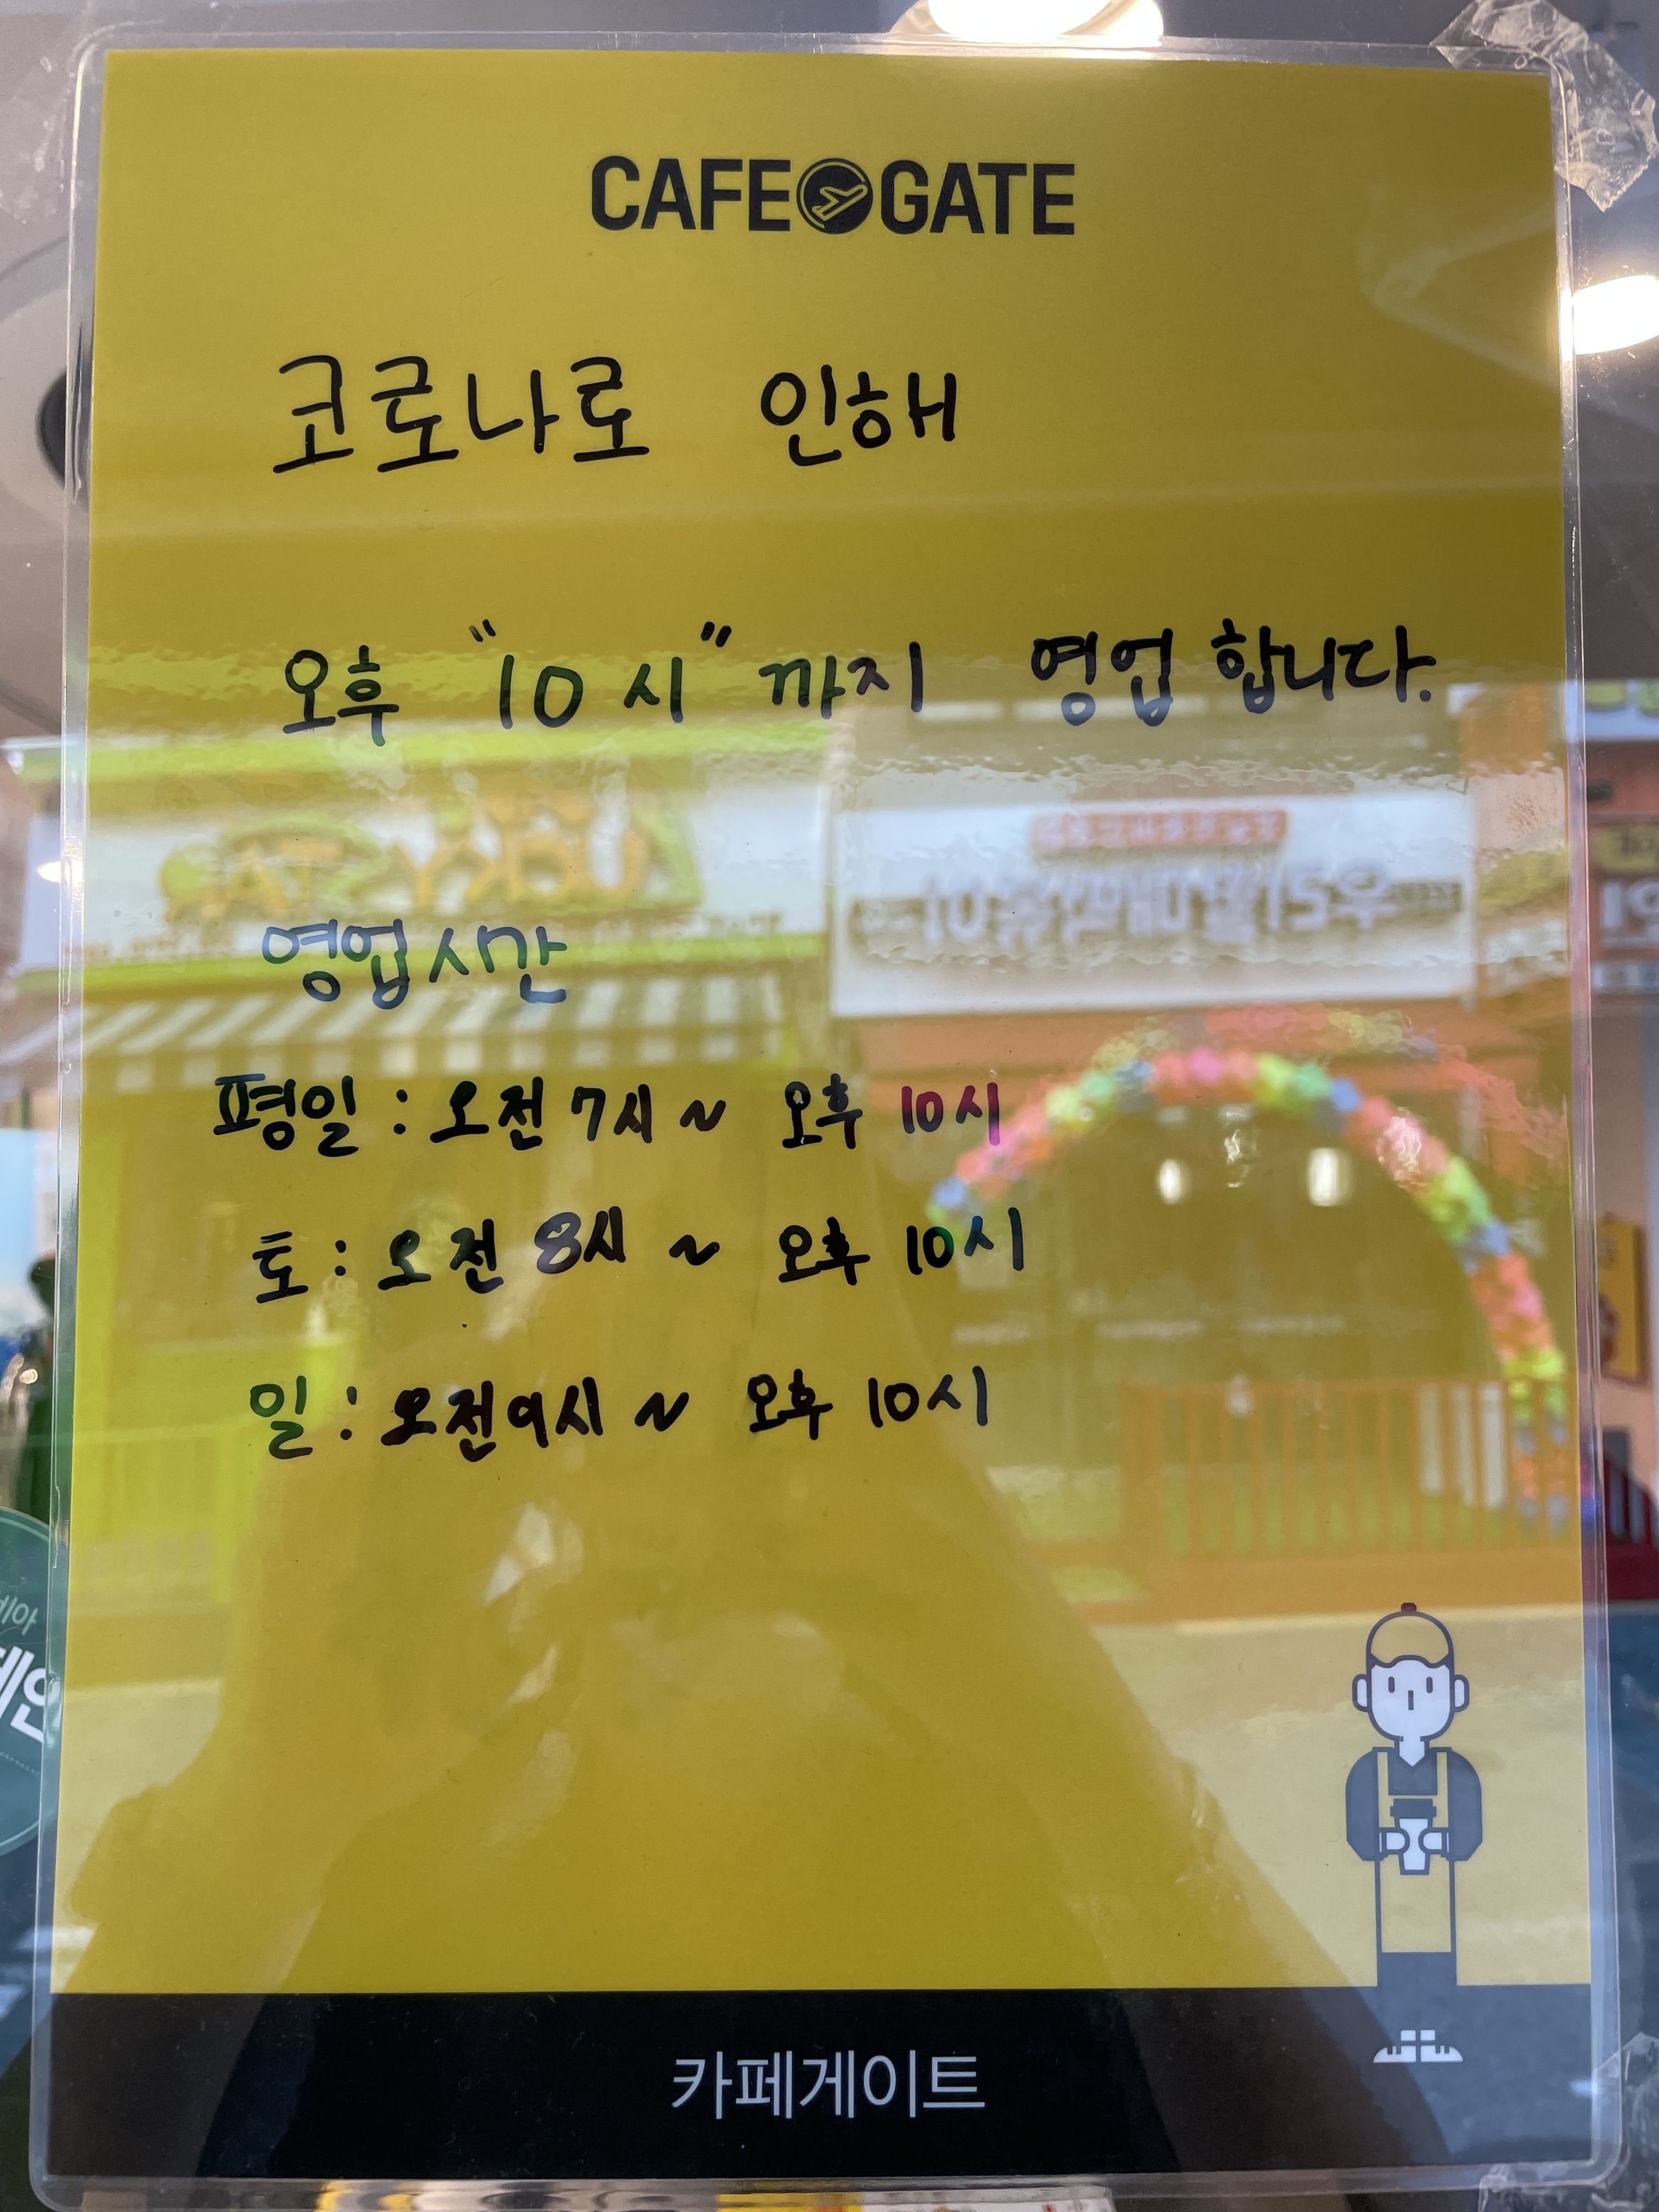 CAFE GATE
코로나로 인해
오후 "10시" 까지 영업 합니다.
영업시간
평일 : 오전 7시 ~ 오후 10시
토 : 오전 8시 ~ 오후 10시
일 : 오전 9시 ~ 오후 10시
카페게이트